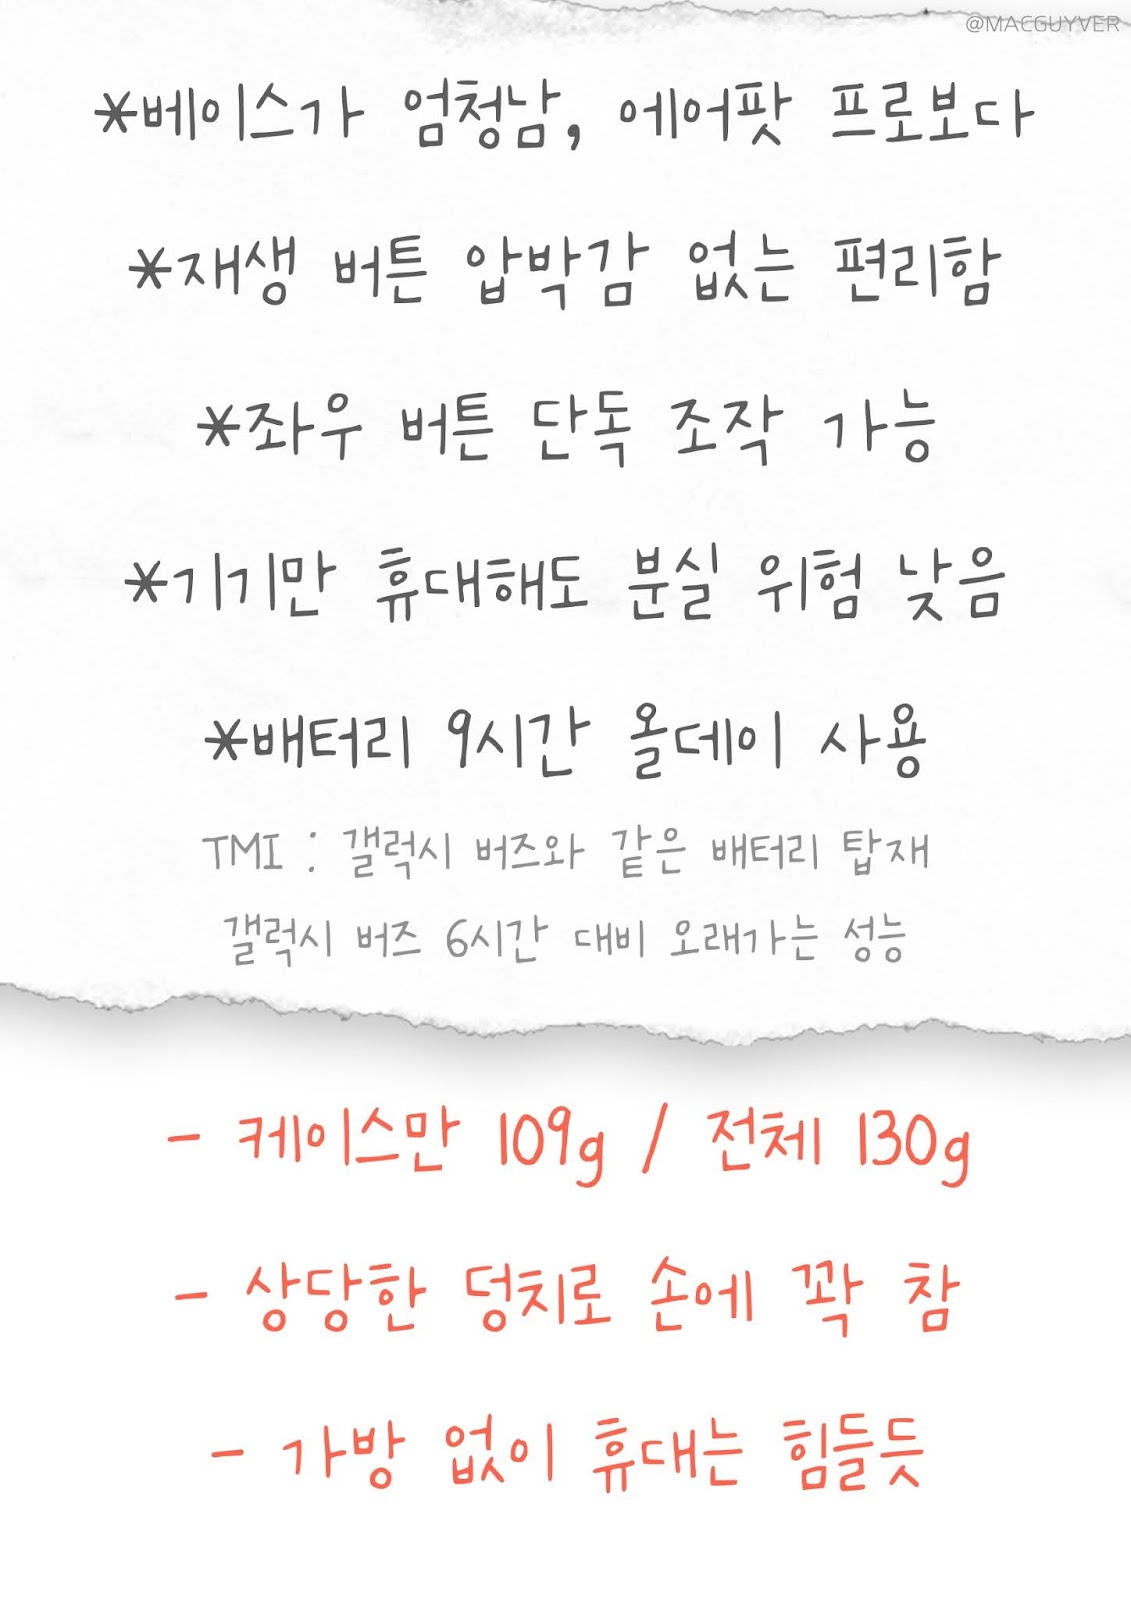 @MACGUYVER
*베이스가 엄청남, 에어팟 프로보다
*재생 버튼 압박감 없는 편리함
*좌우 버튼 단독 조작 가능
*기기만 휴대해도 분실 위험 낮음
*배터리 9시간 올데이 사용
TMI : 갤럭시 버즈와 같은 배터리 탑재
갤럭시 버즈 6시간 대비 오래가는 성능
- 케이스만 109g / 전체 130g
- 상당한 덩치로 손에 꽉 참
- 가방 없이 휴대는 힘들듯